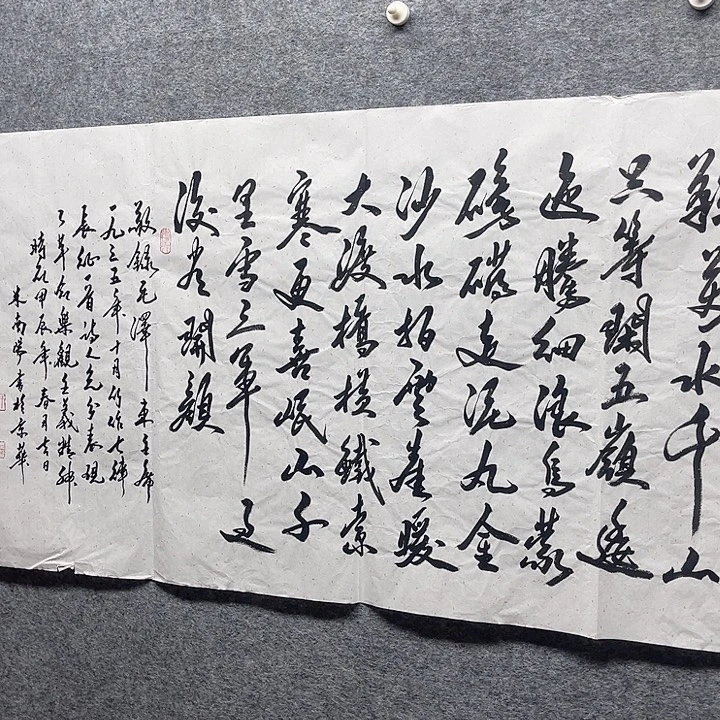 難萬水千山
只等閑五嶺逶
迤騰細浪烏蒙
磅礴走泥丸金
沙水拍雲崖暖
大渡橋橫鐵索
寒更喜岷山千
里雪三軍過
後盡開顏
敬錄毛澤東主席
一九三五年十月所作七律
長征一首詩人充分表現
了革命樂觀主義精神
時在甲辰年春月吉日
書於京華